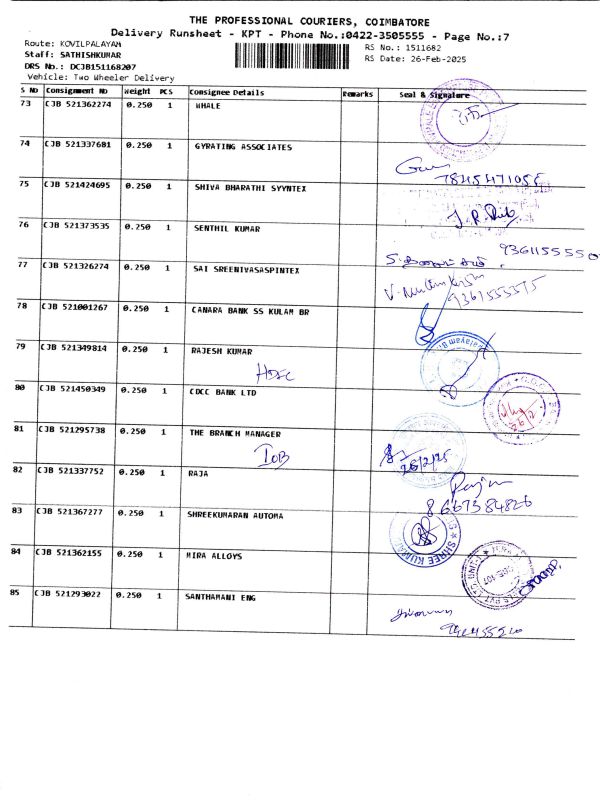 THE PROFESSIONAL COURIERS, COIMBATORE
Delivery Runsheet - KPT - Phone No.:0422-3505555 - Page No.:7
Route: KOVILPALAYAM
Staff: SATHISHKUMAR
DRS No.: DCJB151168207
Vehicle: Two Wheeler Delivery
RS No.: 1511682
RS Date: 26-Feb-2025
S No Consignment No Weight PCS Consignee Details Remarks Seal & Signature
73 CJB 521362274 0.250 1 WHALE
74 CJB 521337681 0.250 1 GYRATING ASSOCIATES
75 CJB 521424695 0.250 1 SHIVA BHARATHI SYYNTEX
76 CJB 521373535 0.250 1 SENTHIL KUMAR
9361155550
77 CJB 521326274 0.250 1 SAI SREENIVASASPINTEX
78 CJB 521001267 0.250 1 CANARA BANK SS KULAM BR
79 CJB 521349814 0.250 1 RAJESH KUMAR
HDFC
80 CJB 521450349 0.250 1 CDCC BANK LTD
81 CJB 521295738 0.250 1 THE BRANCH MANAGER
IOB 26/2/25
82 CJB 521337752 0.250 1 RAJA
8667384826
83 CJB 521367277 0.250 1 SHREEKUMARAN AUTOMA
SHREE KUMAR
84 CJB 521362155 0.250 1 MIRA ALLOYS
85 CJB 521293022 0.250 1 SANTHAMANI ENG